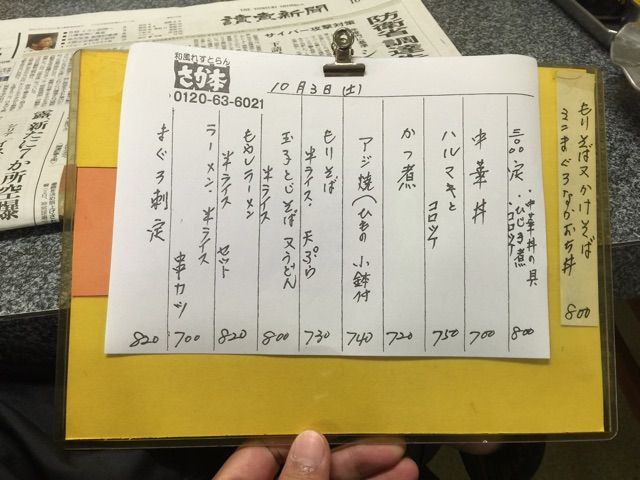 読売新聞
サイバー攻撃対策
防衛省 調達
露 新たに7か所空爆
和風れすとらん
さか本
0120-63-6021
10月3日(土)
もりそば又かけそば
ミニまぐろながおち丼
800
三〇〇定
:中華丼の具
:ひじき煮
:コロッケ
800
中華丼
700
ハルマキと
コロッケ
750
かつ煮
720
アジ焼(ひもの 小鉢付
740
もりそば
半ライス・天ぷら
730
玉子とじそば 又うどん
半ライス
800
もやしラーメン
半ライス セット
820
ラーメン、半ライス
串カツ
700
まぐろ刺定
820